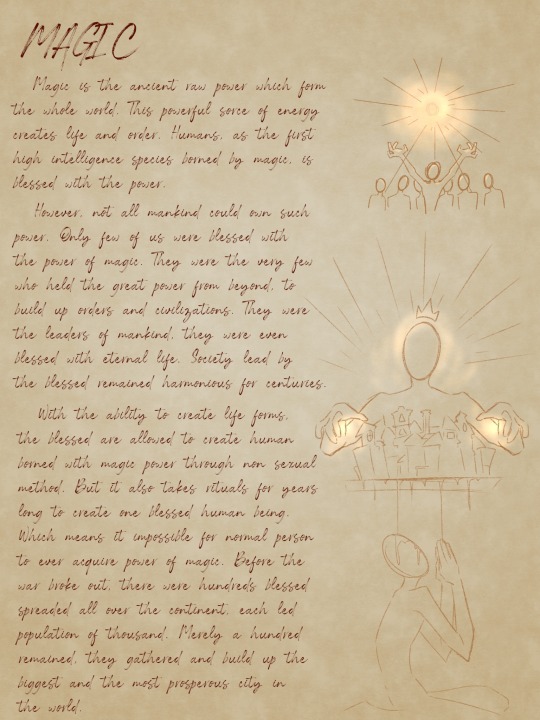 MAGIC
Magic is the ancient raw power which form
the whole world. This powerful sorce of energy
creates life and order. Humans, as the first
high intelligence species borned by magic, is
blessed with the power.
However, not all mankind could own such
power. Only few of us were blessed with
the power of magic. They were the very few
who held the great power from beyond, to
build up orders and civilizations. They were
the leaders of mankind, they were even
blessed with eternal life. Society lead by
the blessed remained harmonious for centuries.
With the ability to create life forms,
the blessed are allowed to create human
borned with magic power through non sexual
method. But it also takes rituals for years
long to create one blessed human being.
Which means it impossible for normal person
to ever acquire power of magic. Before the
war broke out, there were hundreds blessed
spreaded all over the continent, each led
population of thousand. Merely a hundred
remained, they gathered and build up the
biggest and the most prosperous city in
the world.